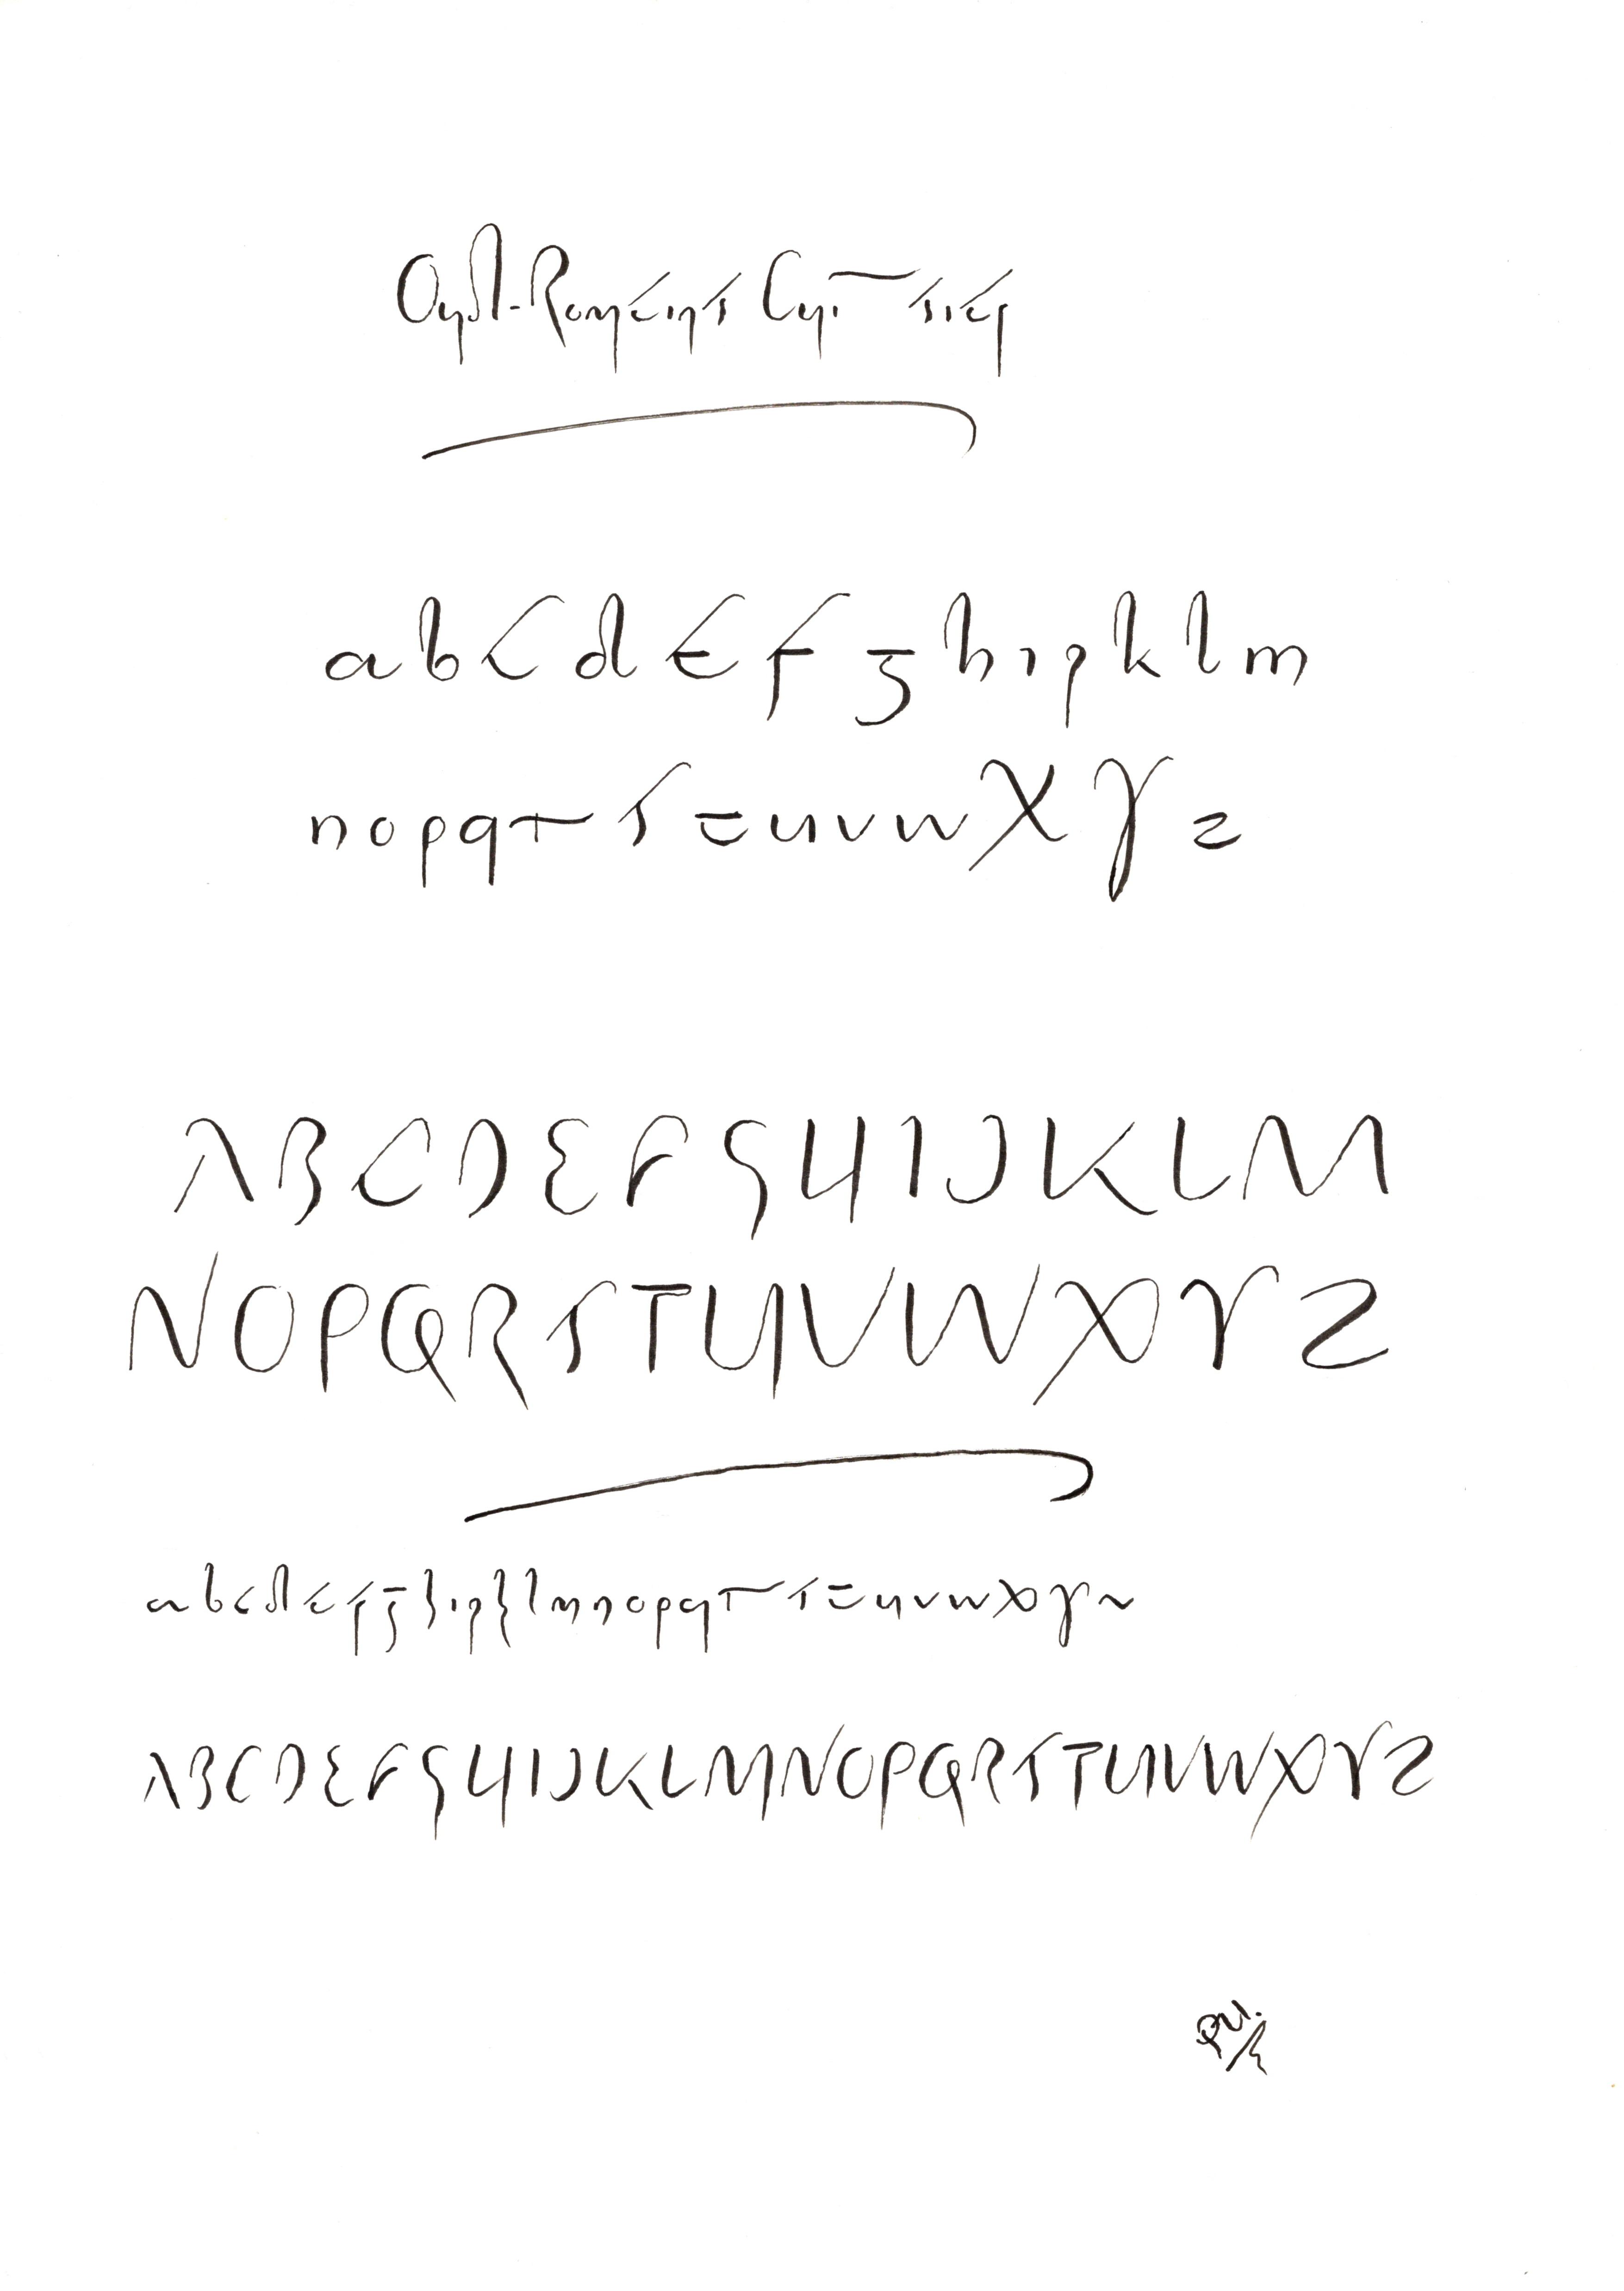 Oud-Romeins Cursief
a b c d e f g h i j k l m
n o p q r s t u v w x y z
A B C D E F G H I J K L M
N O P Q R S T U V W X Y Z
a b c d e f g h i j k l m n o p q r s t u v w x y z
A B C D E F G H I J K L M N O P Q R S T U V W X Y Z